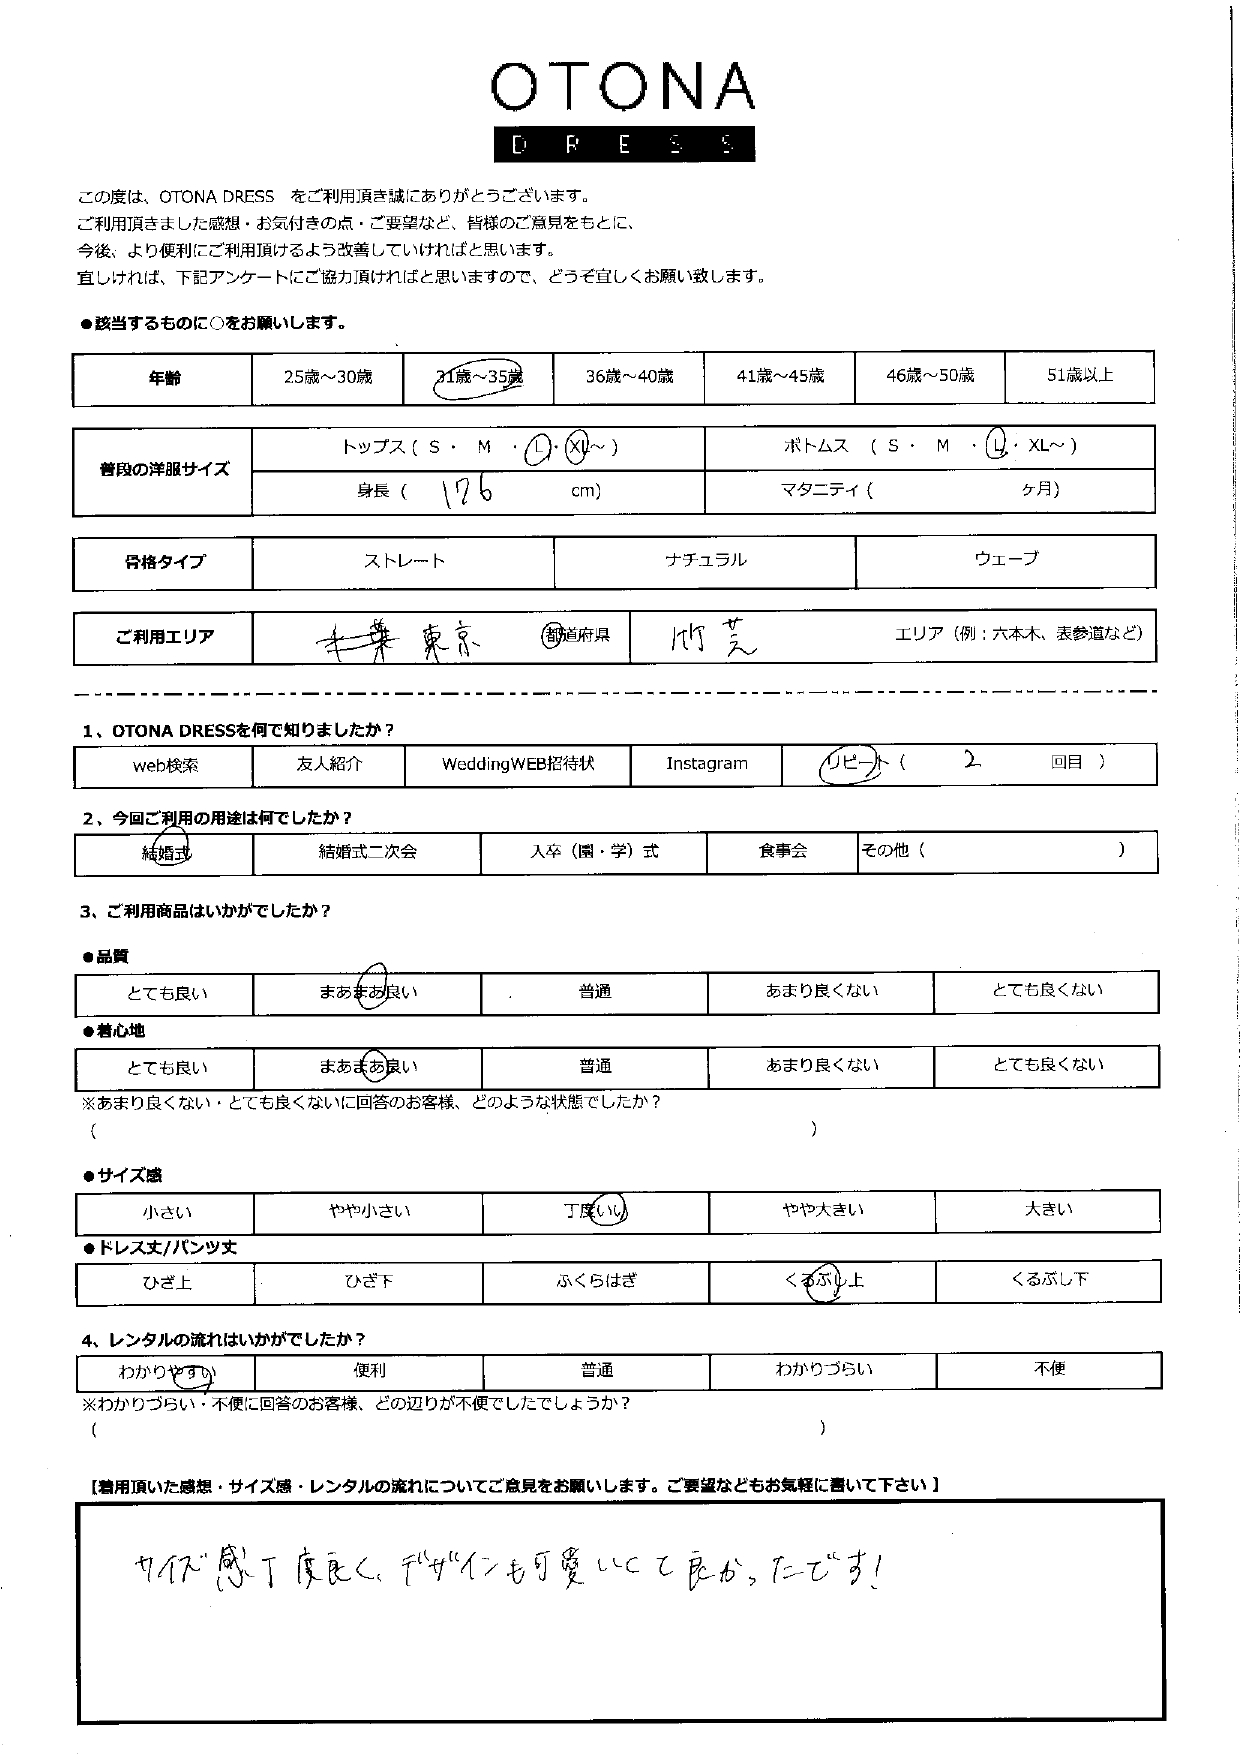 OTONA
DRESS
この度は、OTONA DRESS をご利用頂き誠にありがとうございます。
ご利用頂きました感想・お気付きの点・ご要望など、皆様のご意見をもとに、
今後、より便利にご利用頂けるよう改善していければと思います。
宜しければ、下記アンケートにご協力頂ければと思いますので、どうぞ宜しくお願い致します。
●該当するものに○をお願いします。
年齢 25歳～30歳 31歳～35歳 36歳～40歳 41歳～45歳 46歳～50歳 51歳以上
普段の洋服サイズ トップス ( S ・ M ・ L ・ XL～ ) ボトムス ( S ・ M ・ L ・ XL～ )
身長 ( 176 cm) マタニティ ( ヶ月)
骨格タイプ ストレート ナチュラル ウェーブ
ご利用エリア 千葉 東京 都道府県 竹芝 エリア (例：六本木、表参道など)
1、OTONA DRESSを何で知りましたか？
web検索 友人紹介 WeddingWEB招待状 Instagram リピート ( 2 回目 )
2、今回ご利用の用途は何でしたか？
結婚式 結婚式二次会 入卒（園・学）式 食事会 その他 ( )
3、ご利用商品はいかがでしたか？
●品質
とても良い まあまあ良い 普通 あまり良くない とても良くない
●着心地
とても良い まあまあ良い 普通 あまり良くない とても良くない
※あまり良くない・とても良くないに回答のお客様、どのような状態でしたか？
( )
●サイズ感
小さい やや小さい 丁度いい やや大きい 大きい
●ドレス丈/パンツ丈
ひざ上 ひざ下 ふくらはぎ くるぶし上 くるぶし下
4、レンタルの流れはいかがでしたか？
わかりやすい 便利 普通 わかりづらい 不便
※わかりづらい・不便に回答のお客様、どの辺りが不便でしたでしょうか？
( )
【着用頂いた感想・サイズ感・レンタルの流れについてご意見をお願いします。ご要望などもお気軽に書いて下さい】
サイズ感丁度良く、デザインも可愛いくて良かったです！